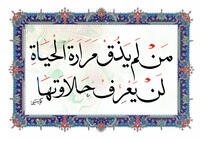 مَنْ لَم يَذُق مَرارَةَ الحَيَاةِ
لَنْ يَعْرِفَ حَلاوَتَهَا